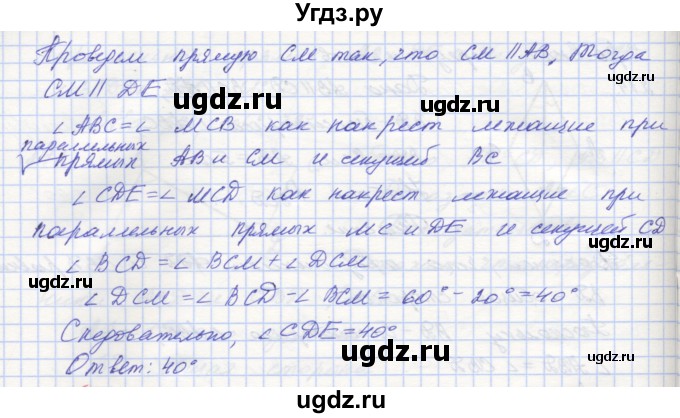 Угдз.ру
Проведем прямую СМ так, что СМ || АВ, тогда
СМ || DE
ugdz.ru ugdz.ru
∠ АВС = ∠ МСВ как накрест лежащие при
параллельных
прямых АВ и СМ и секущей ВС
ugdz.ru ugdz.ru
∠ CDE = ∠ MCD как накрест лежащие при
паралельных прямых МС и DE и секущей CD
ugdz.ru ugdz.ru
∠ BCD = ∠ BCM + ∠ DCM
∠ DCM = ∠ BCD - ∠ BCM = 60° - 20° = 40°
ugdz.ru ugdz.ru
Следовательно, ∠ CDE = 40°
Ответ: 40°
ugdz.ru ugdz.ru